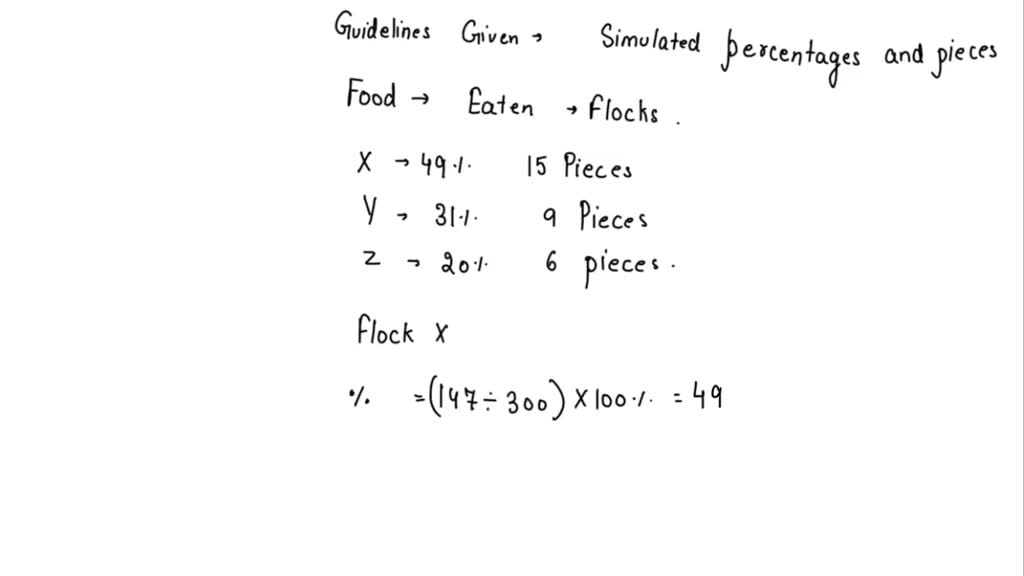 Guidelines Given → Simulated percentages and pieces
Food → Eaten → flocks.
X → 49% 15 Pieces
Y → 31% 9 Pieces
Z → 20% 6 pieces.
flock X
% = (147 ÷ 300) × 100% = 49